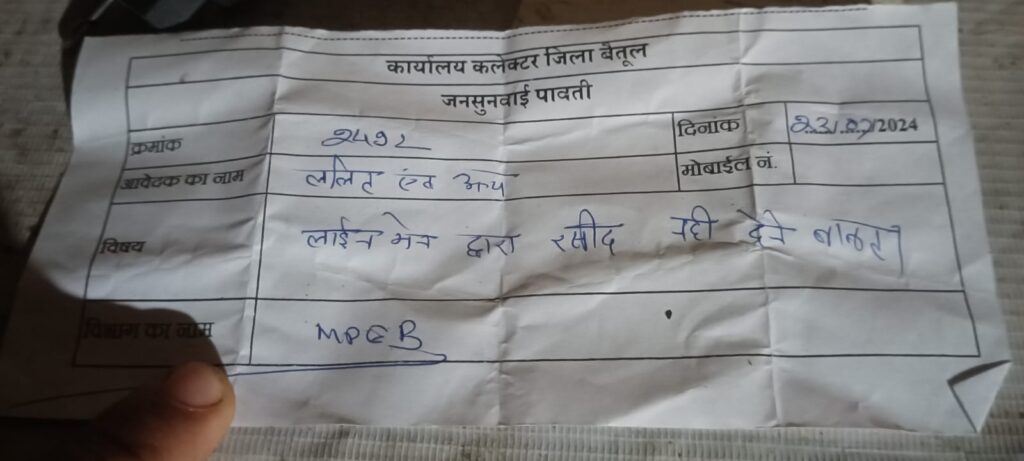 कार्यालय कलेक्टर जिला बैतूल
जनसुनवाई पावती
क्रमांक 2492 दिनांक 23/07/2024
आवेदक का नाम ललित एंव अन्य मोबाईल नं.
विषय लाईन मेन द्वारा रसीद नही देने बाबत।
विभाग का नाम MPEB